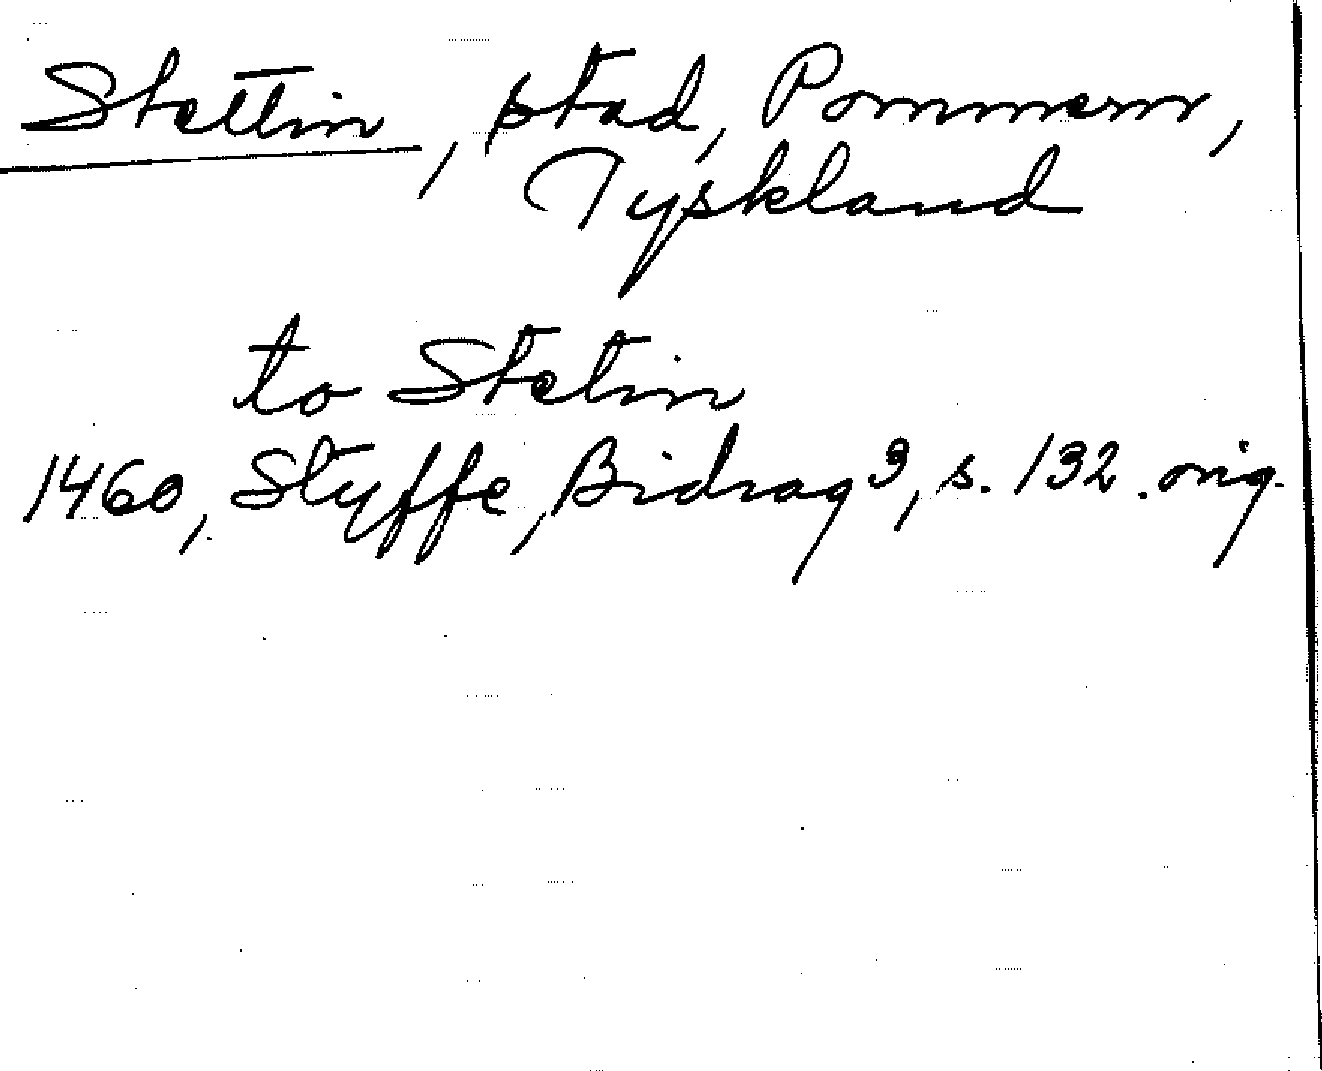 Stettin, stad, Pommern,
Tyskland
to Stetin
1460, Styffe, Bidrag 3, s. 132. orig.